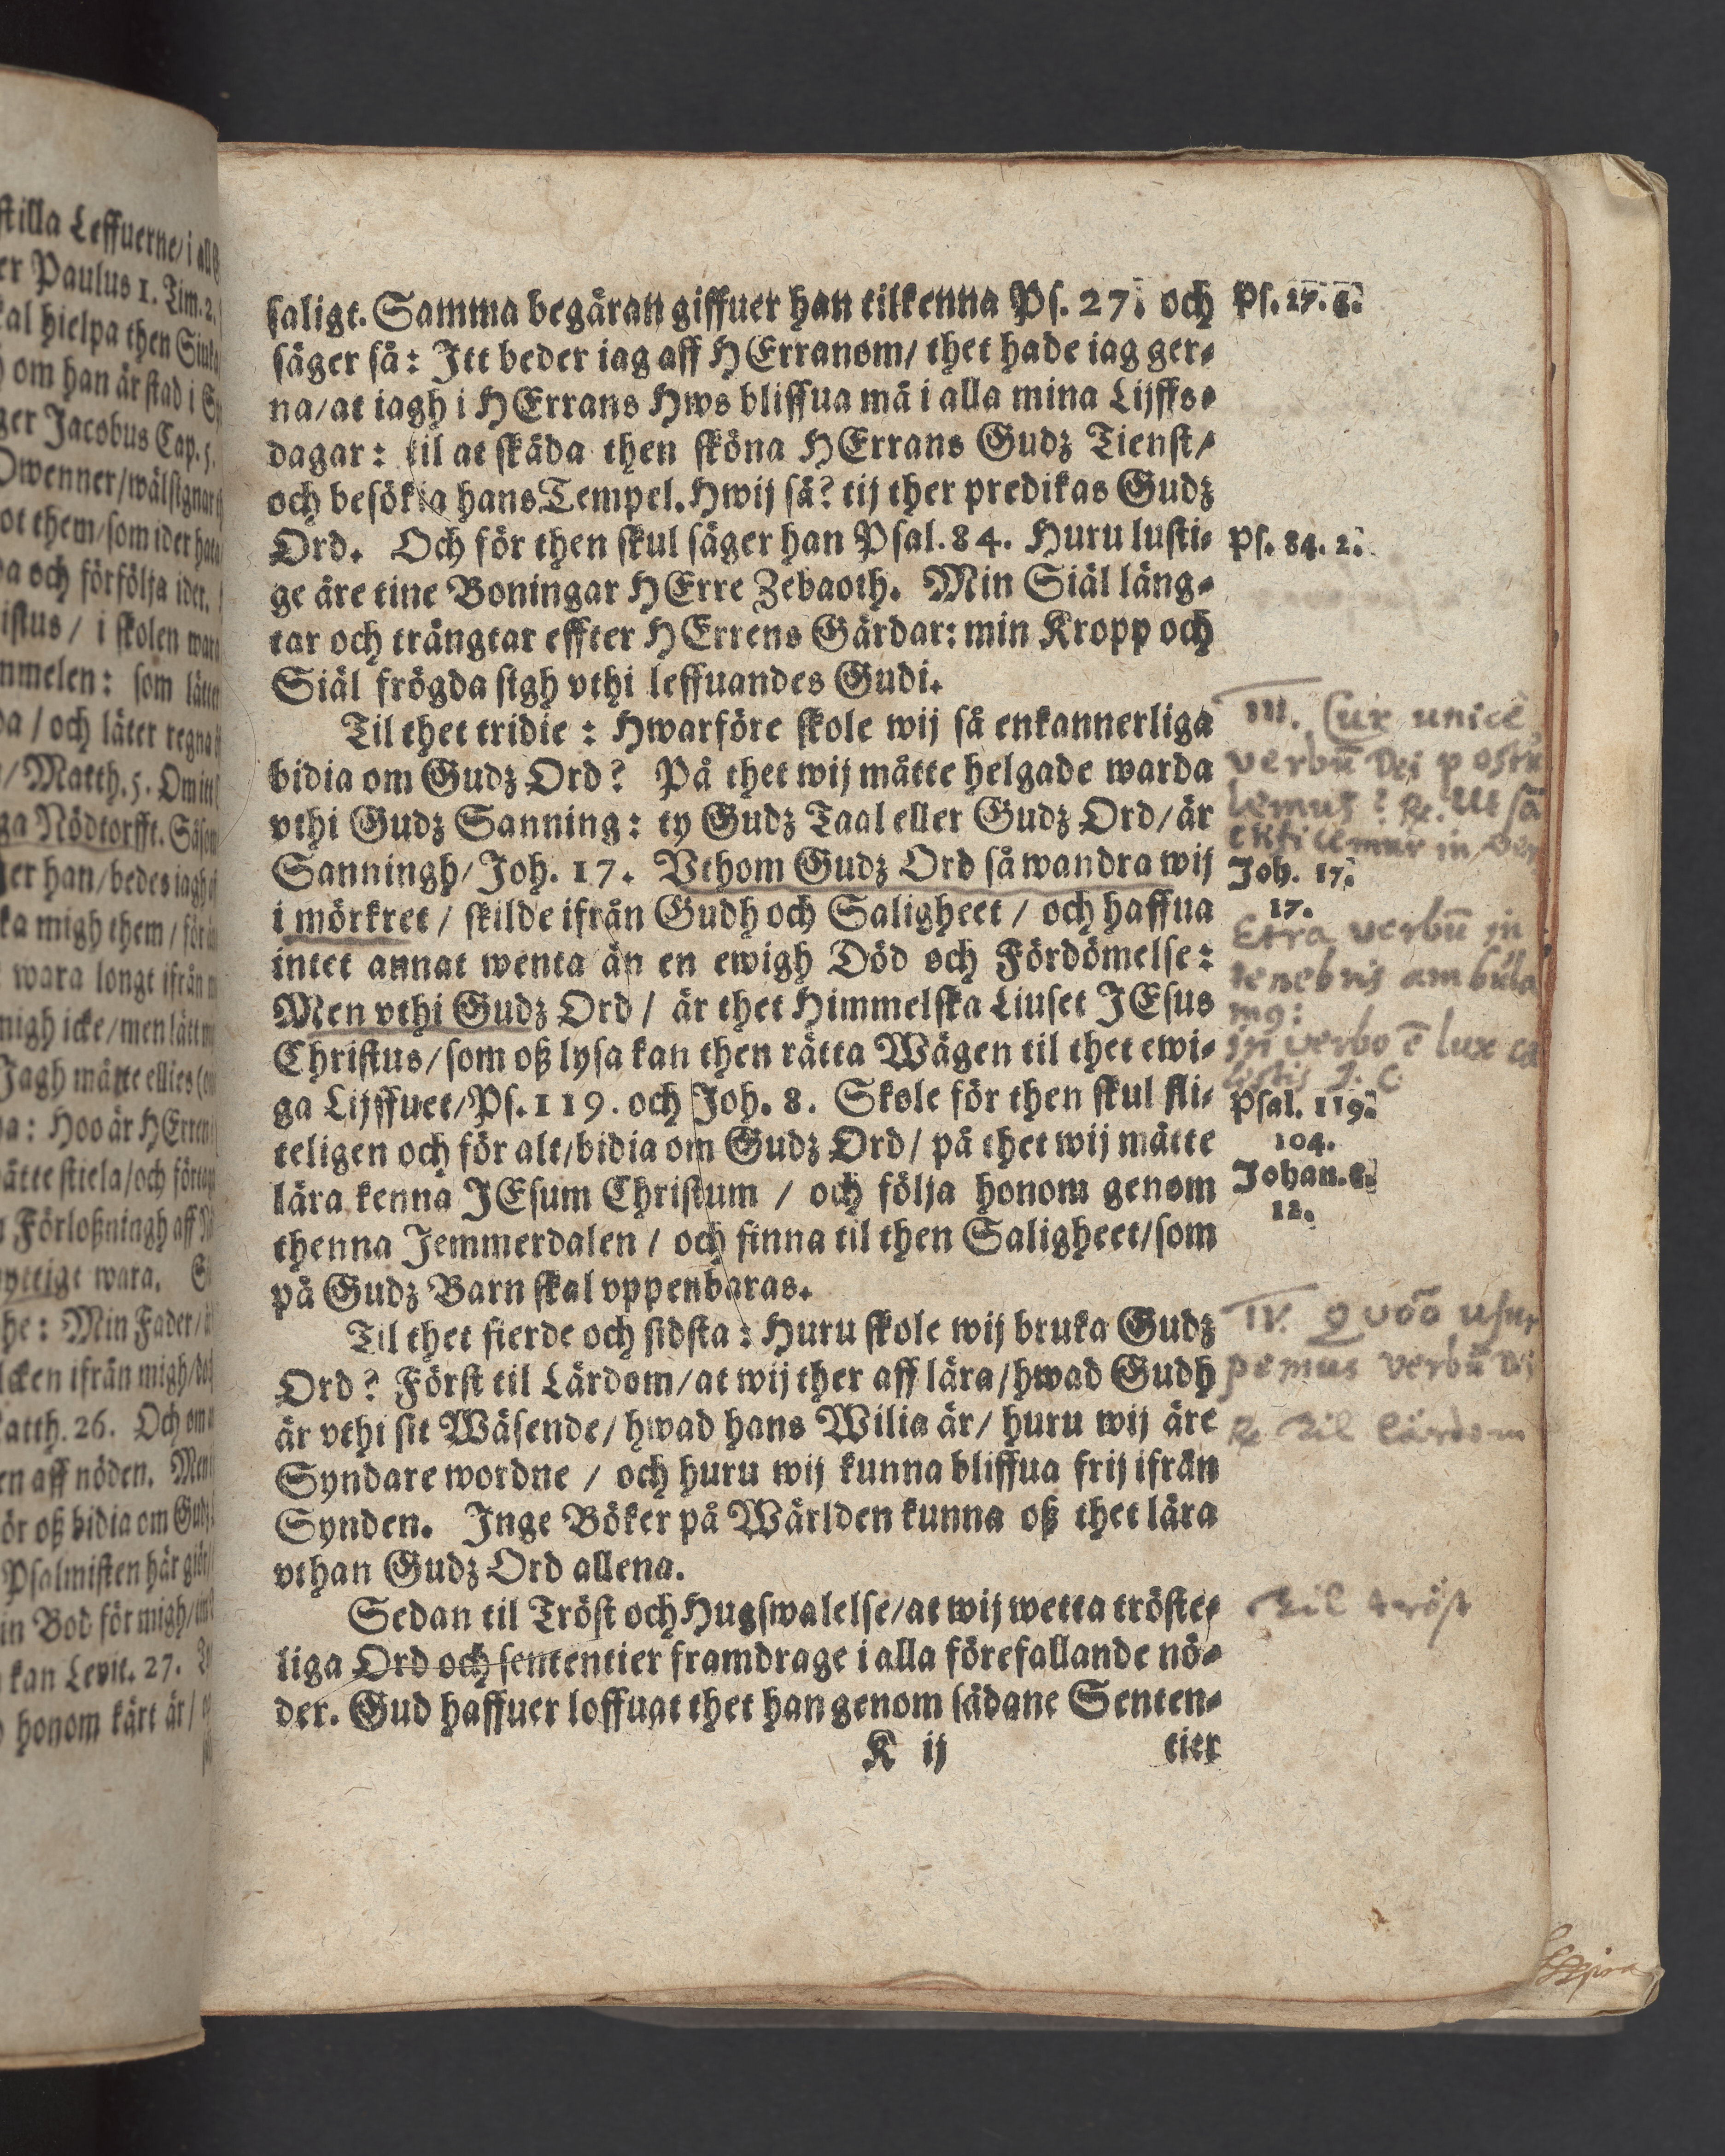 stilla Leffuerne/ i all
er Paulus 1. Tim. 2.
kal hielpa then
om han är stad i
ger Jacobus Cap. 5.
Owenner/wälsignar
ot them/som ider hata
a och förfölja ider.
istus / i skolen wara
mmelen: som låtter
da / och låter regna
/Matth. 5. Om itt
ga Nödtorfft.
er han/bedes iagh
ka migh them / för
wara longt ifrån
migh icke/men lätt
Jagh måtte ellies
a: Hoo är HErren
åtte stiela/och
Förloßningh aff
nyttigt wara.
he: Min Fader/
lcken ifrån migh/
atth. 26. Och om
en aff nöden. Men
ör oß bidia om Gudz
Psalmisten här
in Bod för migh/
kan Levit. 27.
honom kärt är/
saligt. Samma begåran giffuer han tilkenna Ps. 27. och
säger så: Itt beder iag aff HErranom/ thet hade iag ger⸗
na/at iagh i HErrans Hws bliffua må i alla mina Lijffs⸗
dagar: til at skåda then sköna HErrans Gudz Tienst/
och besökia hans Tempel. Hwij så? tij ther predikas Gudz
Ord. Och för then skul säger han Psal. 84. Huru lusti⸗
ge äre tine Boningar HErre Zebaoth. Min Siäl läng⸗
tar och trångtar effter HErrens Gårdar: min Kropp och
Siäl frögda sigh vthi leffuandes Gudi.
Til thet tridie : Hwarföre skole wij så enkannerliga
bidia om Gudz Ord? På thet wij måtte helgade warda
vthi Gudz Sanning: ty Gudz Taal eller Gudz Ord/är
Sanningh/Joh. 17. Vthom Gudz Ord så wandra wij
i mörkret / skilde ifrån Gudh och Saligheet / och haffua
intet annat wenta än en ewigh Död och Fördömelse:
Men vthi Gudz Ord / är thet Himmelska Liuset JEsus
Christus/som oß lysa kan then rätta Wägen til thet ewi⸗
ga Lijffuet/Ps. 119. och Joh. 8. Skole för then skul fli⸗
teligen och för alt/bidia om Gudz Ord/ på thet wij måtte
lära kenna JEsum Christum / och följa honom genom
thenna Jemmerdalen / och finna til then Saligheet/som
på Gudz Barn skal vppenbaras.
Til thet fierde och sidsta : Huru skole wij bruka Gudz
Ord? Först til Lärdom/at wij ther aff lära/hwad Gudh
är vthi sit Wäsende/ hwad hans Wilia är/ huru wij äre
Syndare wordne / och huru wij kunna bliffua frij ifrån
Synden. Inge Böker på Wärlden kunna oß thet lära
vthan Gudz Ord allena.
Sedan til Tröst och Hugswalelse/at wij wetta tröste⸗
liga Ord och sententier framdrage i alla förefallande nö⸗
der. Gud haffuer loffuat thet han genom sådane Senten⸗
K ij
tier
Ps. 27. 4.
Ps. 84. 2.
III. Cur unicè
verbū Dei postu
lemus? R. Ut
in
Joh. 17.
17.
Extra verbū in
tenebris ambula
mꝯ:
in verbo ē lux cæ
lestis J. C.
Psal. 119.
104.
Johan. 8.
12.
IV. Quōo usur
pemus verbū Dei
R Til lärdom
Til tröst